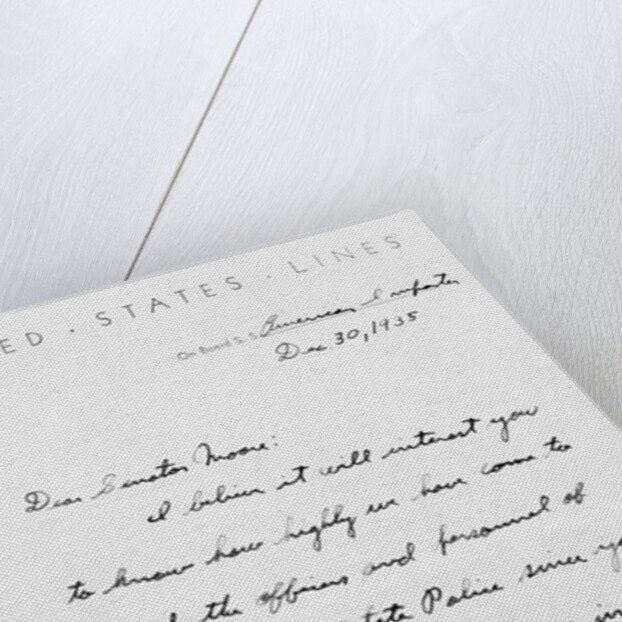 ED · STATES · LINES
On Board S.S. American Importer
Dec 30, 1935
Dear Senator Moore:
I believe it will interest you
to know how highly we have come to
the officers and personnel of
State Police since
in